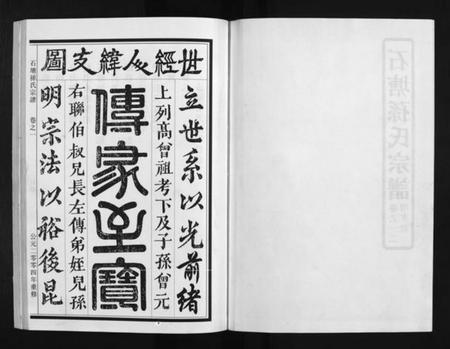 世經人緯支圖
立世系以光前緒
上列高曾祖考下及子孫曾元
傳家至寶
右聯伯叔兄長左傳弟姪兒孫
明宗法以裕後昆
石塘孫氏宗譜 卷之一
公元二零零四年重修
石塘孫氏宗譜